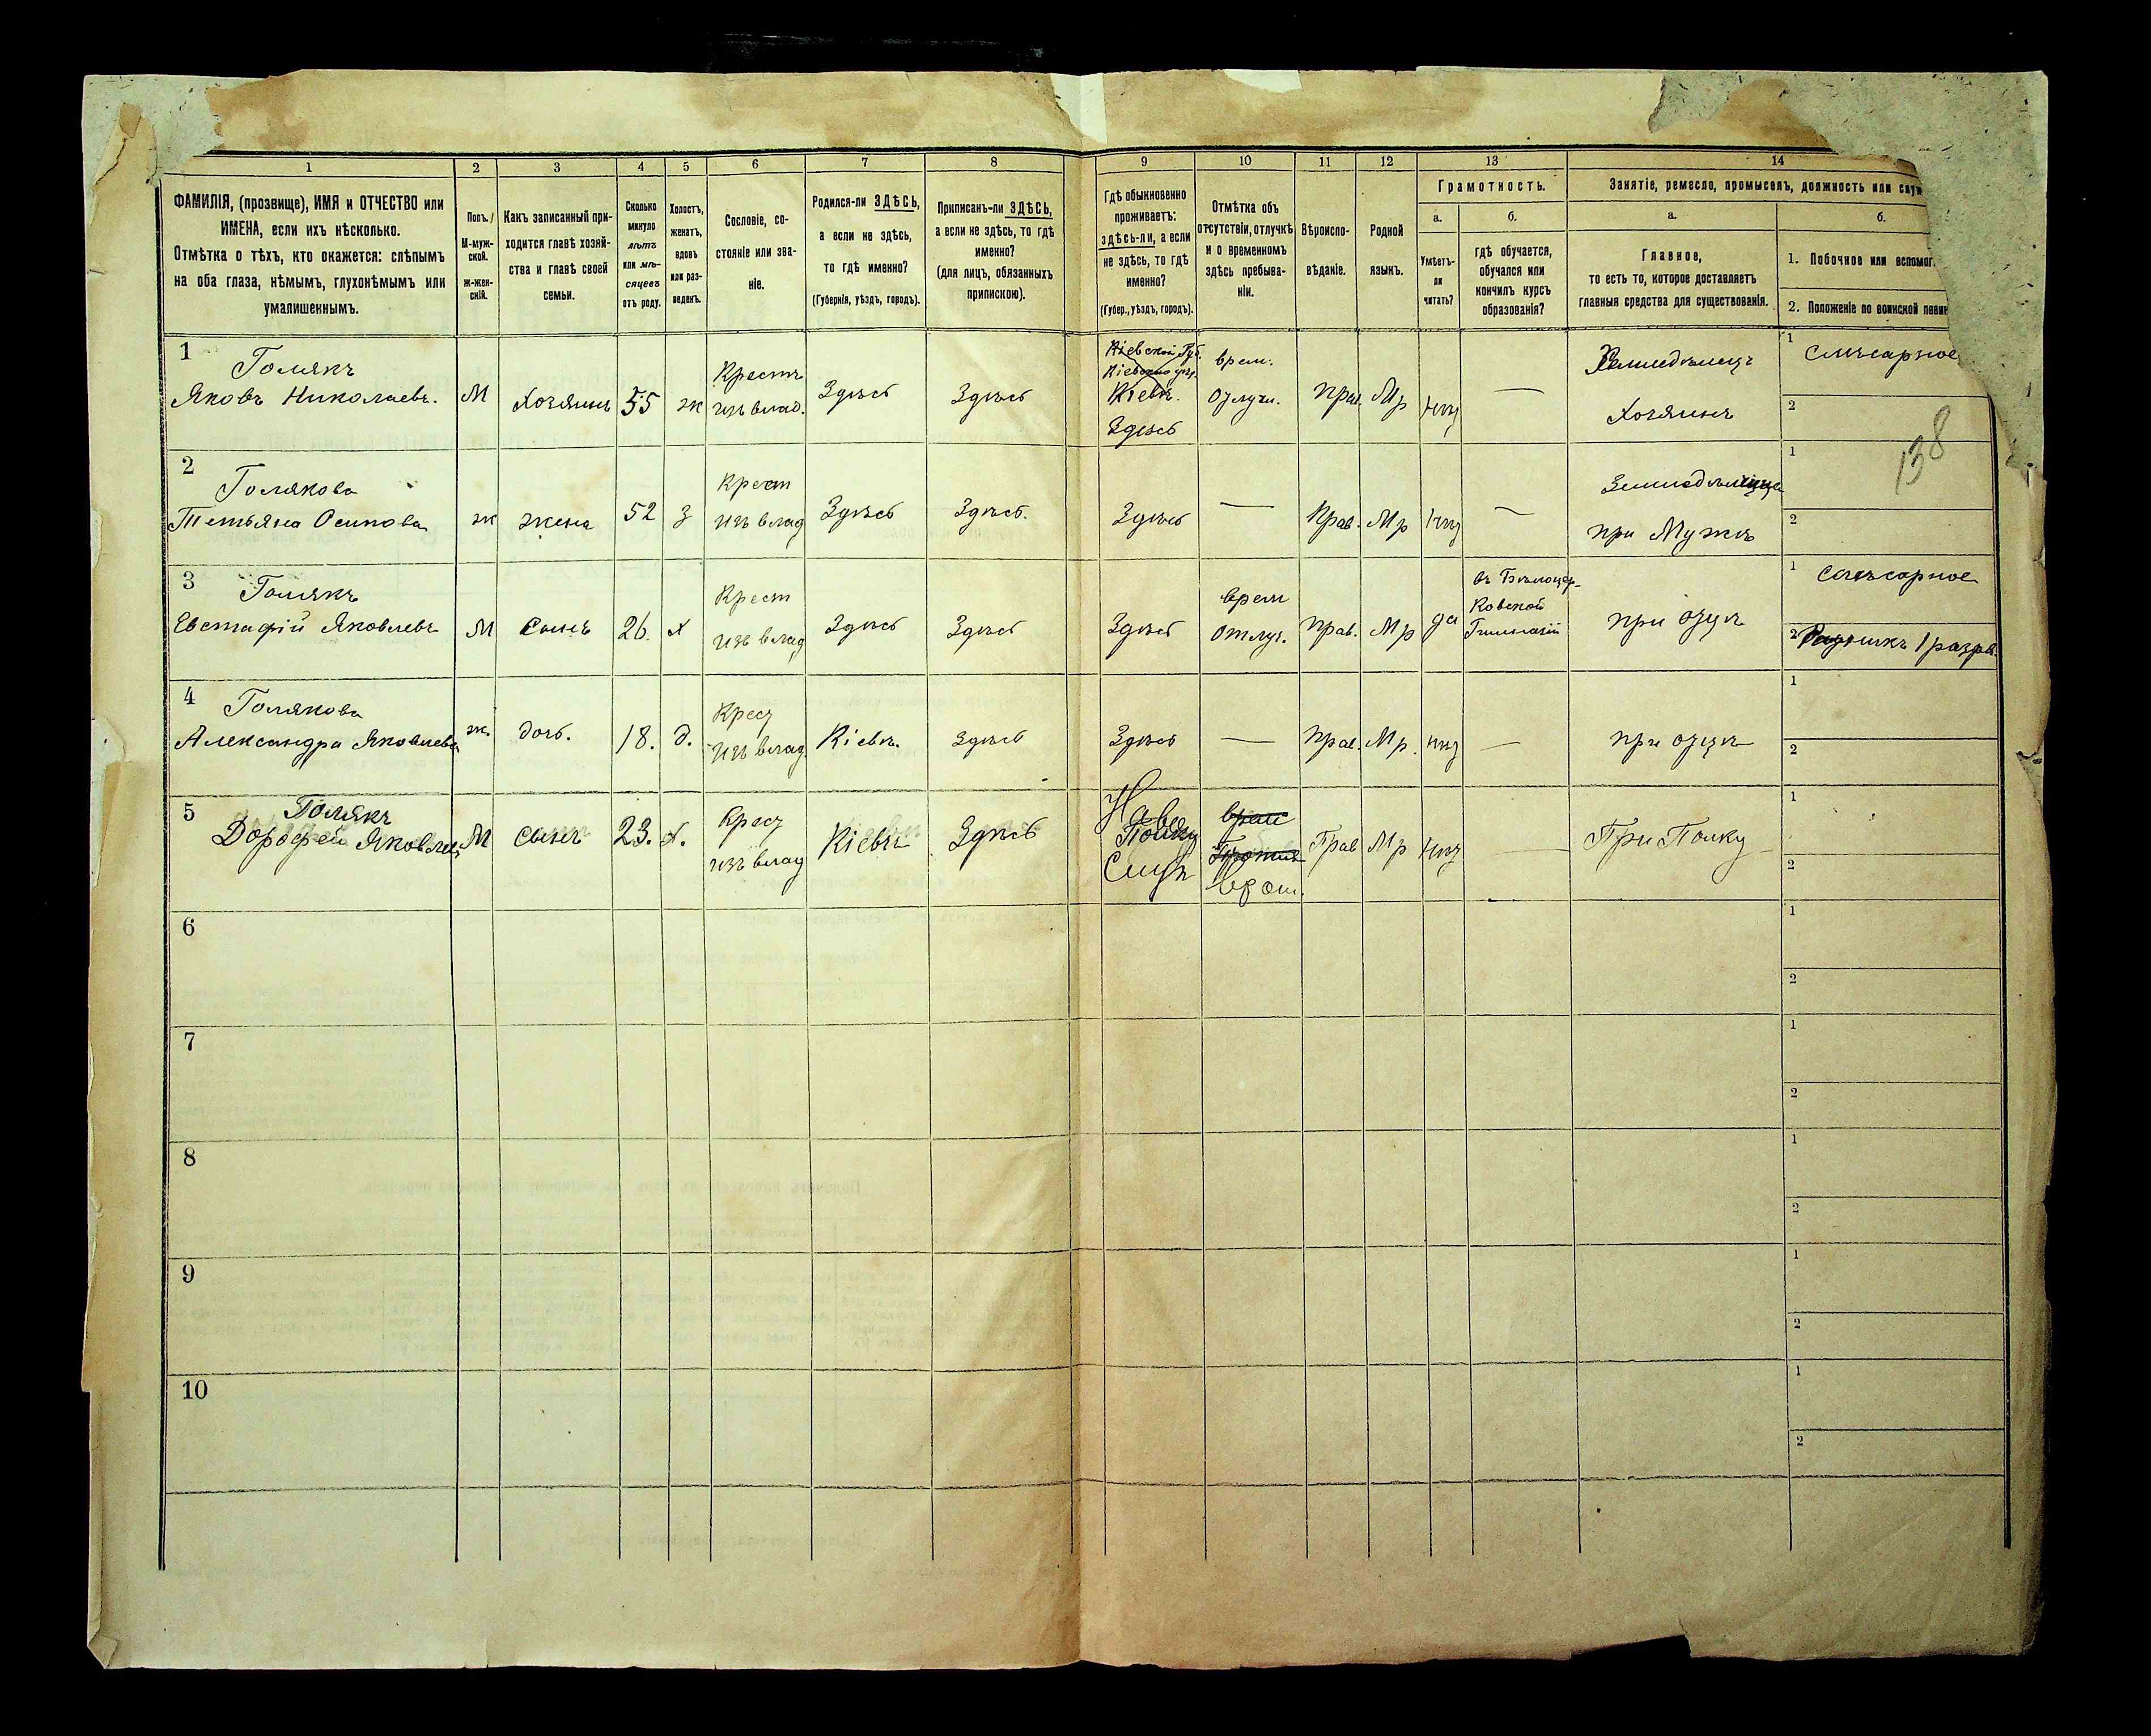 1 2 3 4 5 6 7 8 9 10 11 12 13 14
ФАМИЛІЯ, (прозвище), ИМЯ и ОТЧЕСТВО или
ИМЕНА, если ихъ нѣсколько.
Отмѣтка о тѣхъ, кто окажется: слѣпымъ
на оба глаза, нѣмымъ, глухонѣмымъ или
умалишеннымъ.
Полъ.
М-муж-
ской.
ж-жен-
скій.
Какъ записанный при-
ходится главѣ хозяй-
ства и главѣ своей
семьи.
Сколько
минуло
лѣтъ
или мѣ-
сяцевъ
отъ роду.
Холостъ,
женатъ,
вдовъ
или раз-
веденъ.
Сословіе, со-
стояніе или зва-
ніе.
Родился-ли ЗДѢСЬ,
а если не здѣсь,
то гдѣ именно?
(Губернія, уѣздъ, городъ).
Приписанъ-ли ЗДѢСЬ,
а если не здѣсь, то гдѣ
именно?
(для лицъ, обязанныхъ
припискою).
Гдѣ обыкновенно
проживаетъ:
здѣсь-ли, а если
не здѣсь, то гдѣ
именно?
(Губер., уѣздъ, городъ).
Отмѣтка объ
отсутствіи, отлучкѣ
и о временномъ
здѣсь пребыва-
ніи.
Вѣроиспо-
вѣданіе.
Родной
языкъ.
Грамотность.
а.
Умѣетъ-
ли
читать?
б.
гдѣ обучается,
обучался или
кончилъ курсъ
образованія?
Занятіе, ремесло, промыселъ, должность или служ
а.
Главное,
то есть то, которое доставляетъ
главныя средства для существованія.
б.
1. Побочное или вспомог
2. Положеніе по воинской повин
1
Голякъ
Яковъ Николаевъ.
М
Хозяинъ
55
ж
Крестъ
изъ влад.
Здѣсь
Здѣсь
Кіевской Губ.
Кіевъ.
Здѣсь
врем.
Отлуч.
Прав.
Мр
нѣт
—
Земледѣлецъ
Хозяинъ
1 Слѣсарное
2
138
2
Голякова
Тетьяна Осипова
ж
жена
52
з
Крест
изъ влад
Здѣсь
Здѣсь.
Здѣсь
—
Прав.
Мр
нѣт
—
Земледѣлица
при Мужѣ
1
2
3
Голякъ
Евстафій Яковлевъ
М
Сынъ
26.
х
Крест
изъ влад
Здѣсь
Здѣсь
Здѣсь
врем
отлуч.
Прав.
Мр
да
въ Бѣлоцер-
ковской
Гимназіи
при отцѣ
1 Слѣсарное
2 Ратникъ 1 разря.
4
Голякова
Александра Яковлева
ж.
дочь.
18.
д.
Крест
изъ влад.
Кіевѣ.
Здѣсь
Здѣсь
—
Прав.
Мр.
нѣт
—
при отцѣ
1
2
5
Голякъ
Дорофей Яковлев
М
сынъ
23.
х.
Крест
изъ влад
Кіевѣ
Здѣсь
Полку
врем
Прав
Мр
нѣт
—
При Полку
1
2
6
1
2
7
1
2
8
1
2
9
1
2
10
1
2